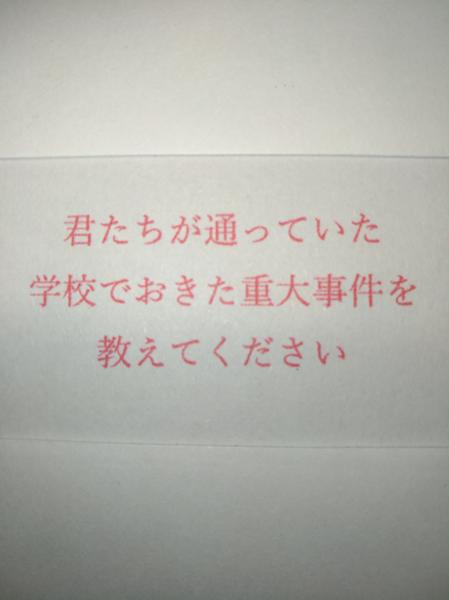 君たちが通っていた
学校でおきた重大事件を
教えてください